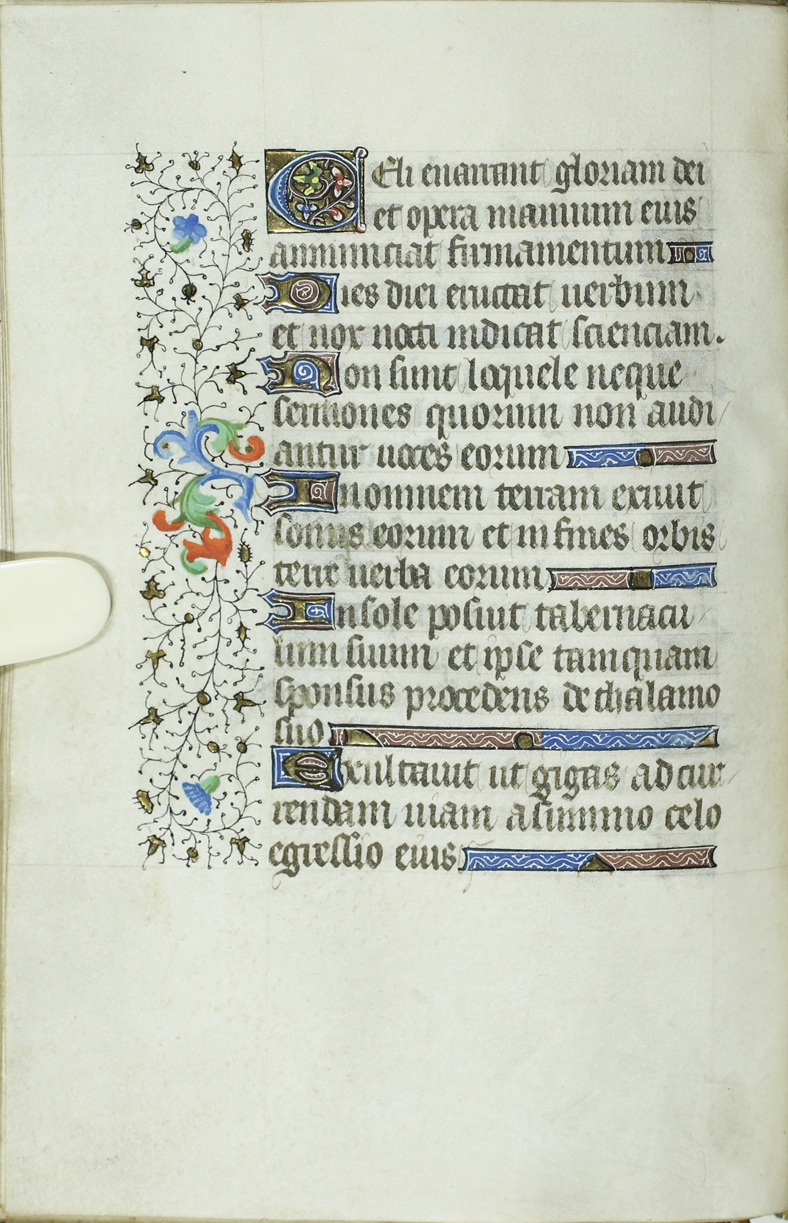 Celi enarrant gloriam dei
et opera manuum eius
annunciat firmamentum
Dies diei eructat uerbum
et nox nocti indicat scienciam.
Non sunt loquele neque
sermones quorum non audi
antur uoces eorum
In omnem terram exiuit
sonus eorum et in fines orbis
terre uerba eorum
In sole posuit tabernacu
lum suum et ipse tamquam
sponsus procedens de thalamo
suo
Exultauit ut gigas ad cur
rendam uiam a summo celo
egressio eius